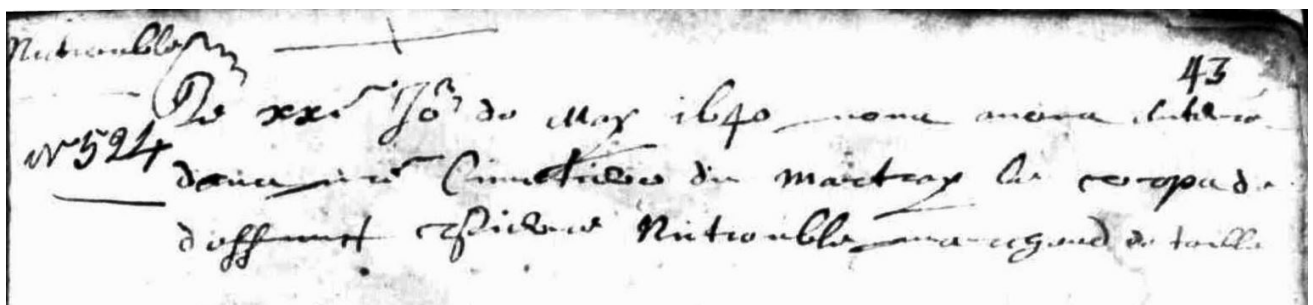 Nutrouble
43
Le xxe Jor de May 1640 nous avons enterré
N 524
dans nre Cimetiere du martray le corps de
deffunct Pierre Nutrouble marchand de toille